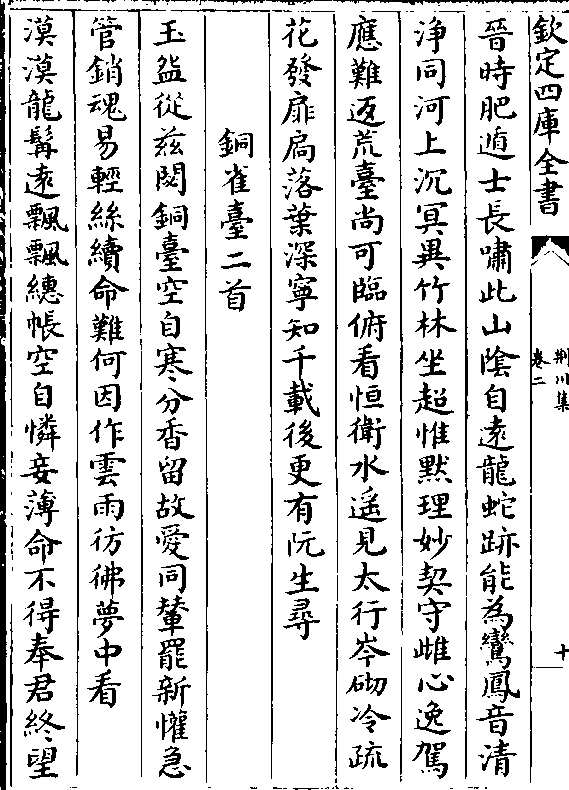 欽定四庫全書
荆川集
卷二
十
晉時肥遁士長嘯此山陰自遠龍蛇跡能為鸞鳳音清
浄同河上沉冥異竹林坐超惟黙理妙契守雌心逸駕
應難返荒臺尚可臨俯看恒衛水遙見太行岑砌冷疏
花發扉扃落葉深寧知千載後更有阮生尋
銅雀臺二首
玉盌從兹閟銅臺空自寒分香留故愛同輦罷新懽急
管銷魂易輕絲續命難何因作雲雨彷彿夢中看
漠漠龍髯逺飄飄繐帳空自憐妾薄命不得奉君終望